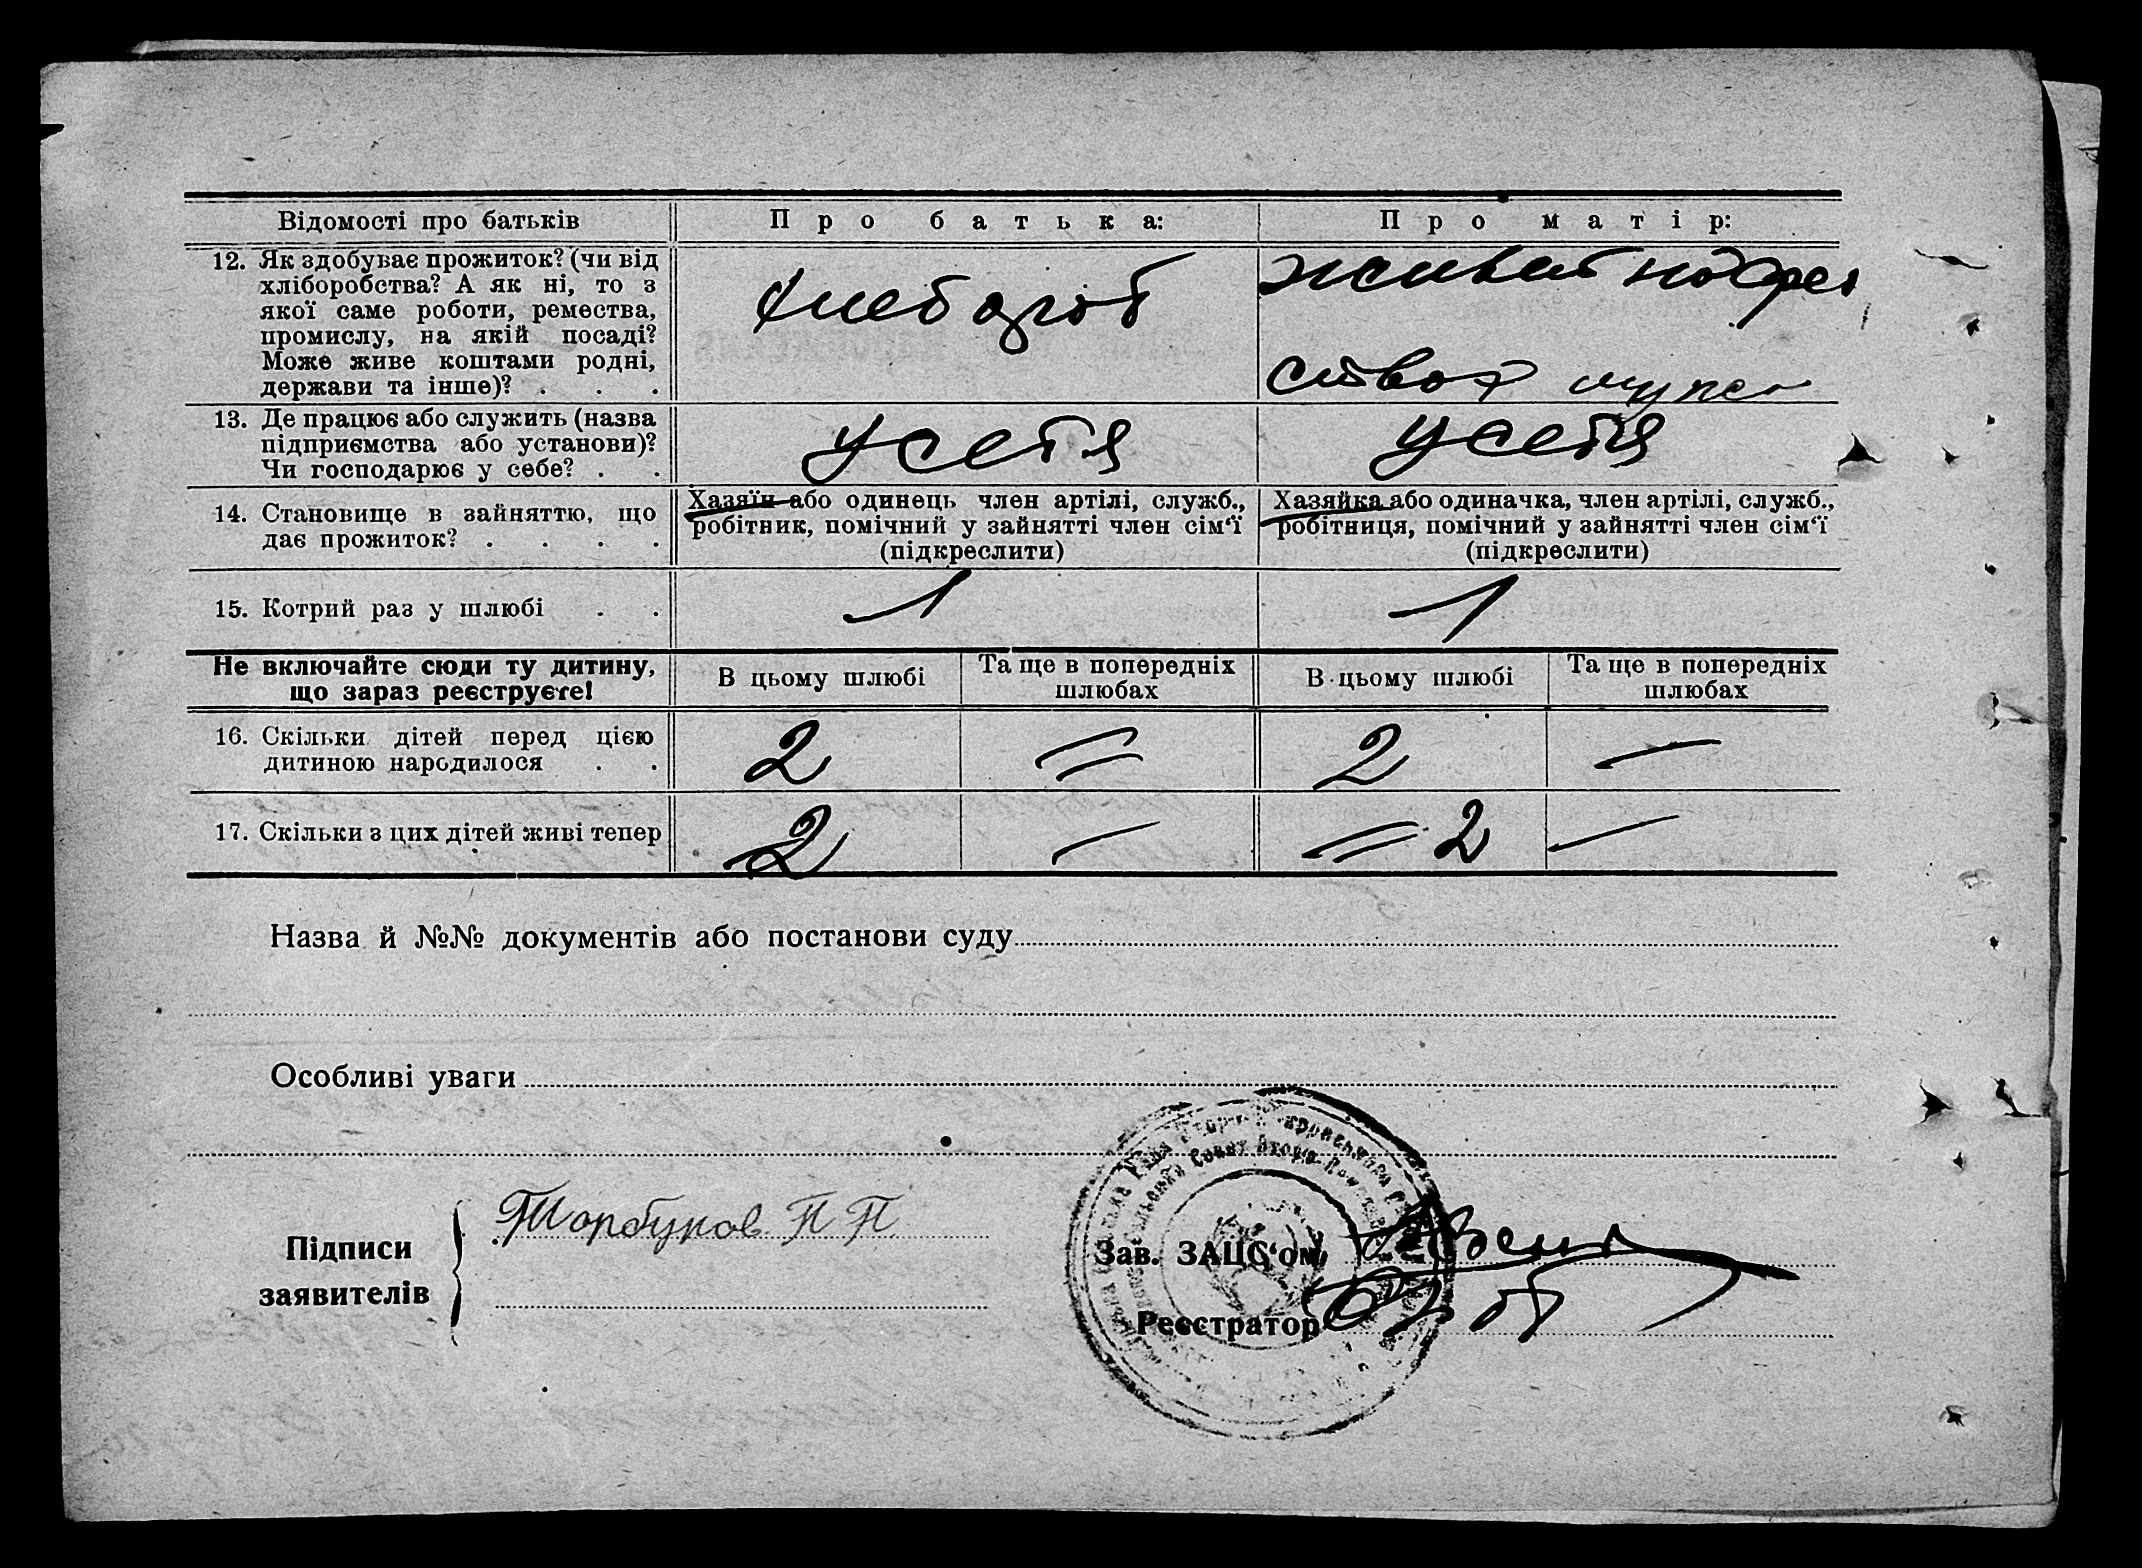 Відомості про батьків
Про батька:
Про матір:
12. Як здобуває прожиток? (чи від
хліборобства? А як ні, то з
якої саме роботи, ремества,
промислу, на якій посаді?
Може живе коштами родні,
держави та інше)? . . .
хлебороб
ствох мужа
13. Де працює або служить (назва
підприємства або установи)?
Чи господарює у себе? . .
усебя
усебя
14. Становище в зайняттю, що
дає прожиток? . . . .
Хазяїн або одинець член артілі, служб.,
робітник, помічний у зайнятті член сім'ї
(підкреслити)
Хазяйка або одиначка, член артілі, служб.,
робітниця, помічний у зайнятті член сім'ї
(підкреслити)
15. Котрий раз у шлюбі . .
1
1
Не включайте сюди ту дитину,
що зараз реєструєте!
В цьому шлюбі
Та ще в попередніх
шлюбах
В цьому шлюбі
Та ще в попередніх
шлюбах
16. Скільки дітей перед цією
дитиною народилося . .
2 = 2 —
17. Скільки з цих дітей живі тепер
2 — = 2 —
Назва й №№ документів або постанови суду
Особливі уваги
Підписи
заявителів
П П
Зав. ЗАЦС'ом
Реєстратор